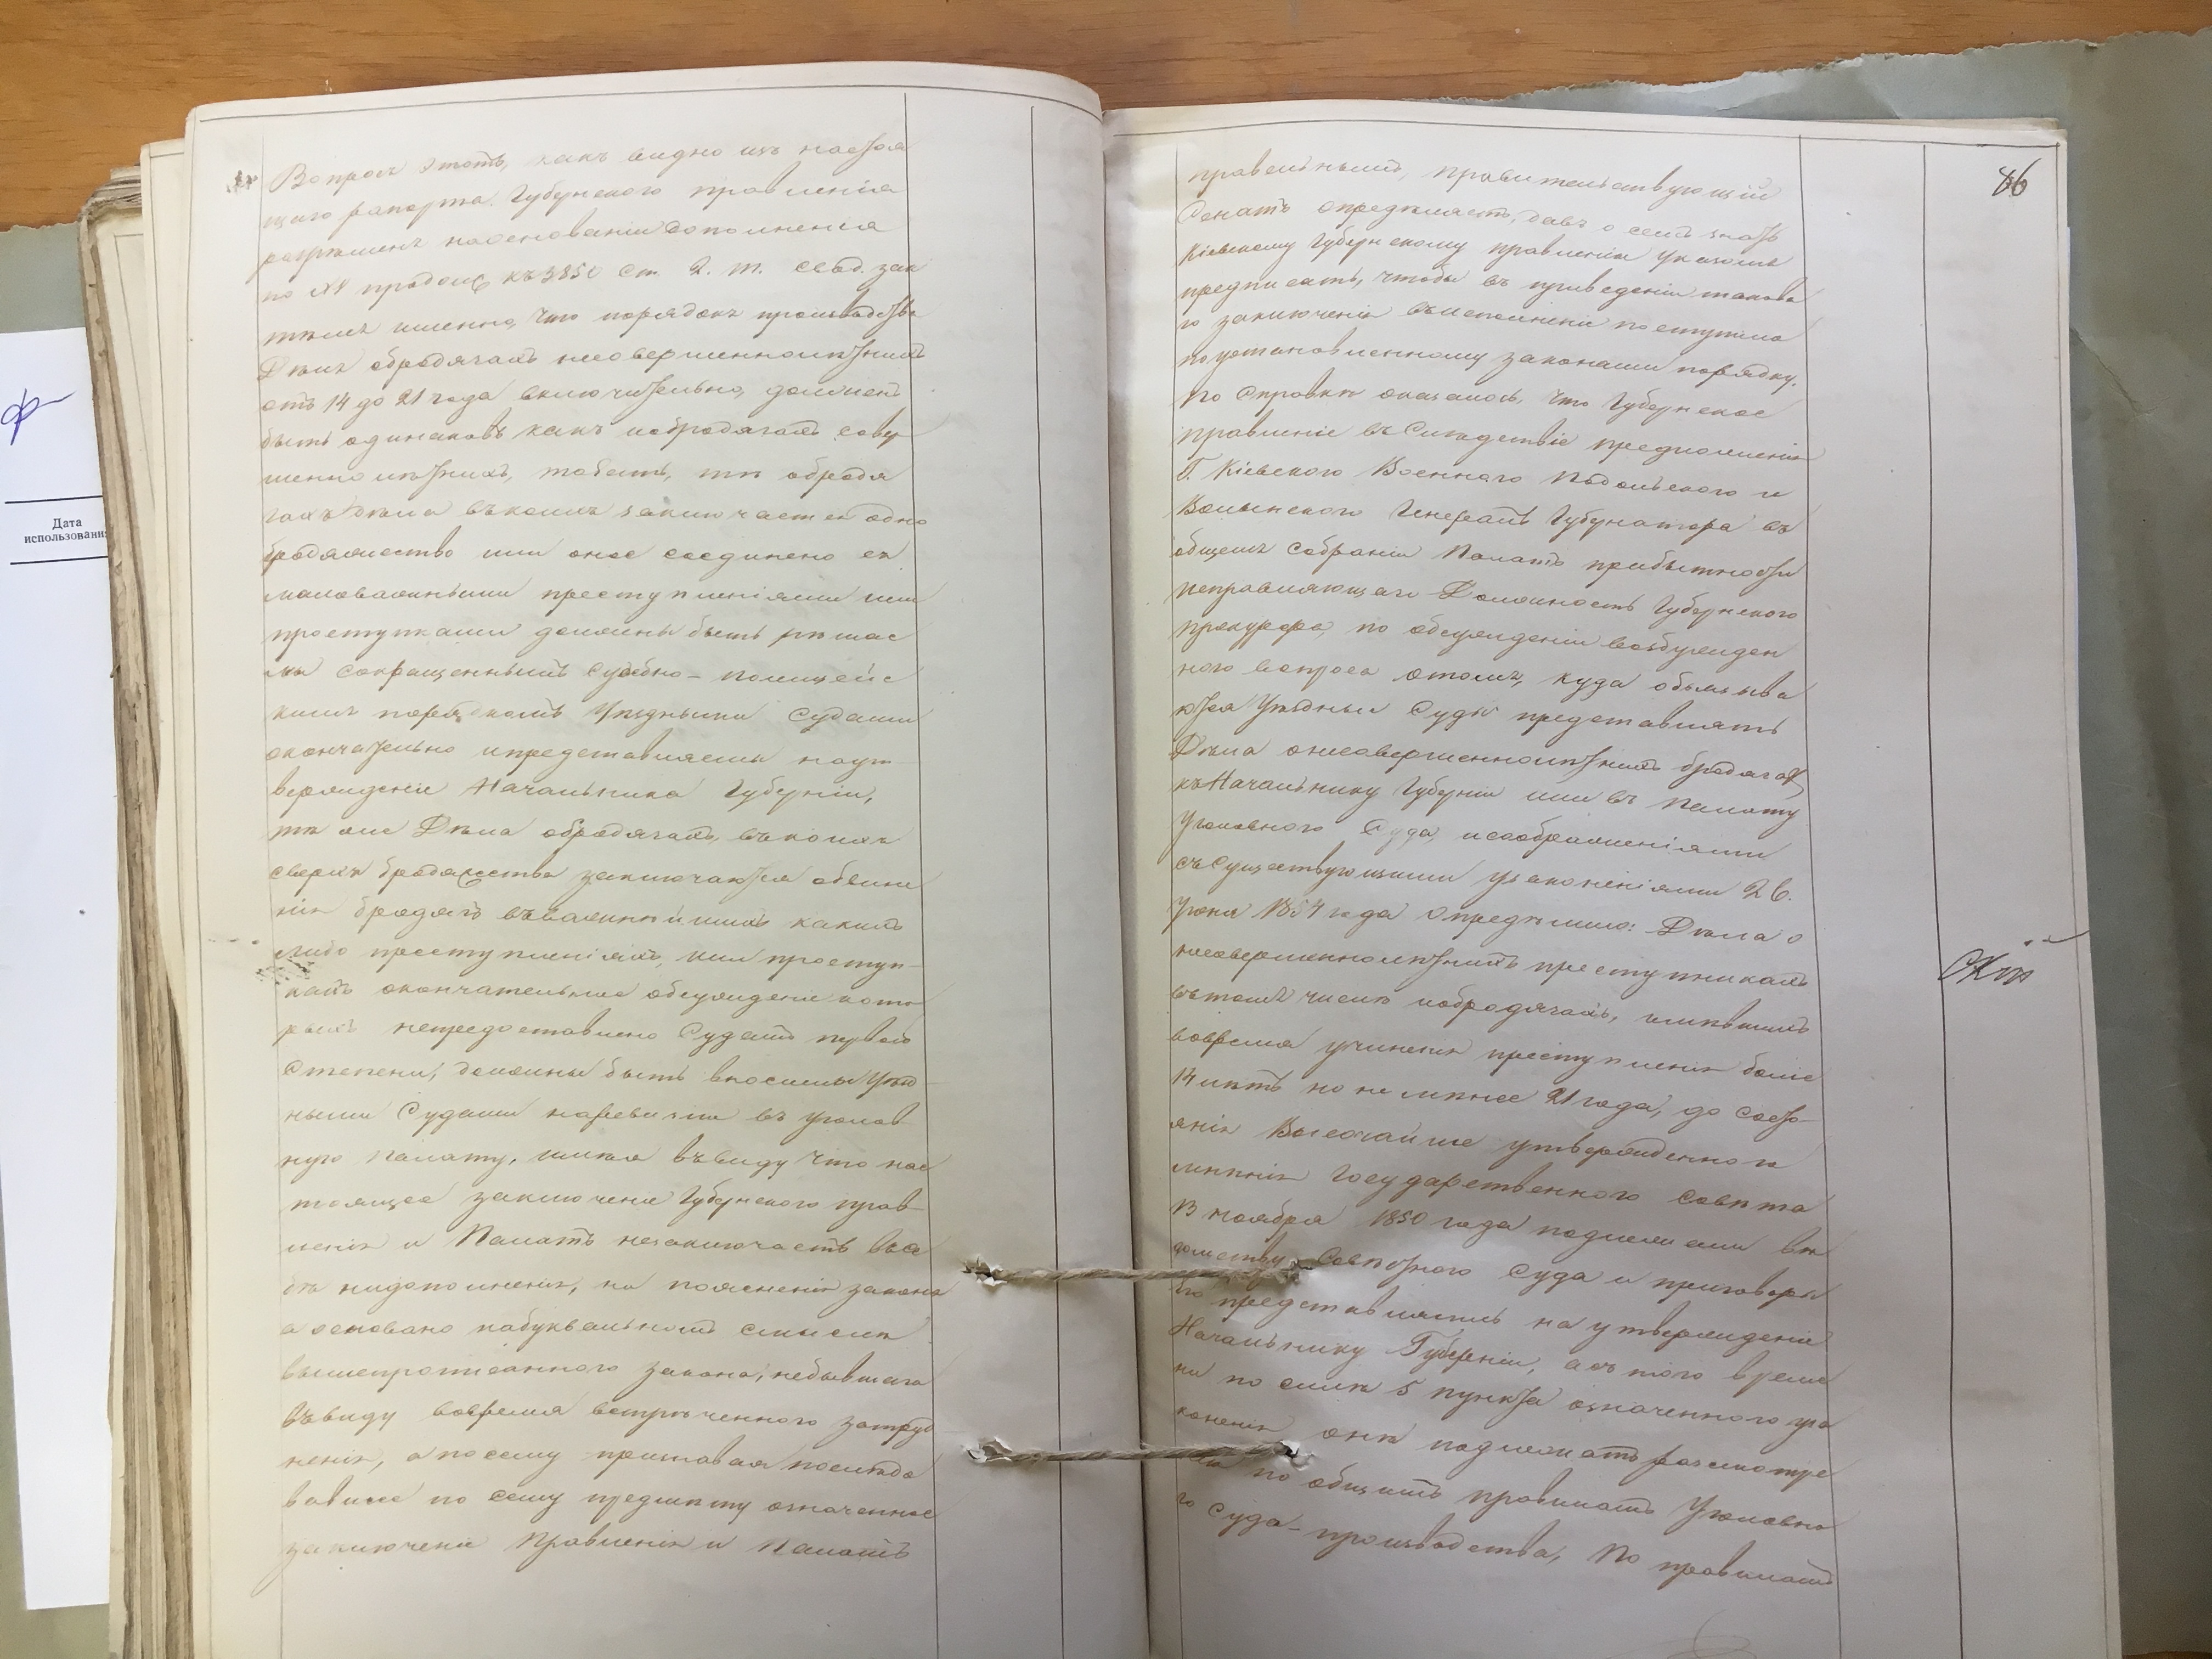 Вопросъ этотъ, какъ видно изъ настоя
щаго рапорта Губернскаго правленія
разрѣшенъ наоснованіи дополненія
по XV продолж къ 3850 ст. 2. т. Свод. зак
тѣмъ именно, что порядокъ производства
Дѣлъ обродягахъ несовершеннолѣтнихъ
отъ 14 до 21 года включительно, долженъ
быть одинаковъ какъ и обродягахъ совер
шеннолѣтнихъ, тобесть, тѣ обродя
гахъ дѣла въ коихъ заключается одно
бродяжество или оное соединено съ
маловажными преступленіями или
проступками должны быть рѣшае
мы сокращеннымъ Судебно-полицейс
кимъ порядкомъ Уѣздными Судами
окончательно и представляемы наут
вержденіе Начальника Губерніи,
тѣ же Дѣла обродягахъ, въ коихъ
сверхъ бродяжества заключаются обвине
нія бродягъ въ важнѣйшихъ какихъ
либо преступленіяхъ, или проступ-
кахъ окончательное обсужденіе кото
рыхъ непредоставлено Судамъ первой
Степени, должны быть вносимы Уѣзд
ными Судами наревизію въ уголов
ную Палату, имѣя въ виду что нас
тоящее заключеніе Губернскаго прав
ленія и Палатъ незаключаетъ въсе
бѣ нидополненія, ни поясненія закона
а основано набуквальномъ смыслѣ
вышепрописаннаго закона, небывшаго
въ виду вовремя встрѣченнаго затруд
ненія, а посему признавая послѣдо
вавшее по сему предмету означенное
заключеніе Правленія и Палатъ
86
правильнымъ, правительствующій
Сенатъ опредѣляетъ, давъ о семъ знать
Кіевскому Губернскому правленію указомъ
предписать, чтобы въ приведеніи таково
го заключенія въ исполненіе поступило
по установленному законами порядку.
По Справкѣ оказалось, что Губернское
правленіе въ Слѣдствіе предложенія
Г. Кіевскаго Военнаго Подольскаго и
Волынскаго Генералъ Губернатора въ
общемъ Собраніи Палатъ прибытности
исправляющаго Должность Губернскаго
прокурора, по обсужденіи возбужден
наго вопроса отомъ, куда обязыва
ются Уѣздные Суды представлять
Дѣла онесовершеннолѣтнихъ бродягах
къ Начальнику Губерніи или въ Палату
Уголовнаго Суда, исоображеніями
съ Существующими узаконеніями 26.
Іюня 1854 года Опредѣлило: Дѣла о
несовершеннолѣтнихъ преступникахъ
въ томъ числѣ иобродягахъ, имѣвшихъ
вовремя учиненія преступленія болѣе
14 лѣтъ но не менѣе 21 года, до состо-
янія Высочайше утвержденнаго
мнѣнія Государственнаго Совѣта
13 ноября 1850 года подлежали вѣ
домству Совѣстнаго Суда и приговоры
его представлялись на утвержденіе
Начальнику Губерніи, а съ того време
ни по силѣ 5 пункта означеннаго уза
коненія они подлежатъ разсмотре
по общимъ правиламъ Уголовна
го Суда-производства, По правиламъ
Дата
использования